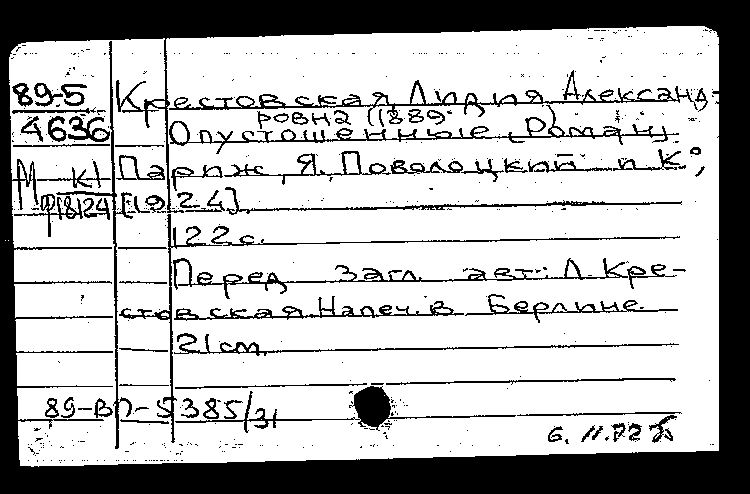 89-5 Крестовская, Лидия Александ-
4636 ровна (1889- )
Опустошенные [Роман].
М К1 Париж, Я. Поволоцкий и К°,
18124 [1924].
122 с.
Перед загл. авт.: Л. Кре-
стовская. Напеч. в Берлине.
21 cm.
89-ВП-5385/31
6.11.72